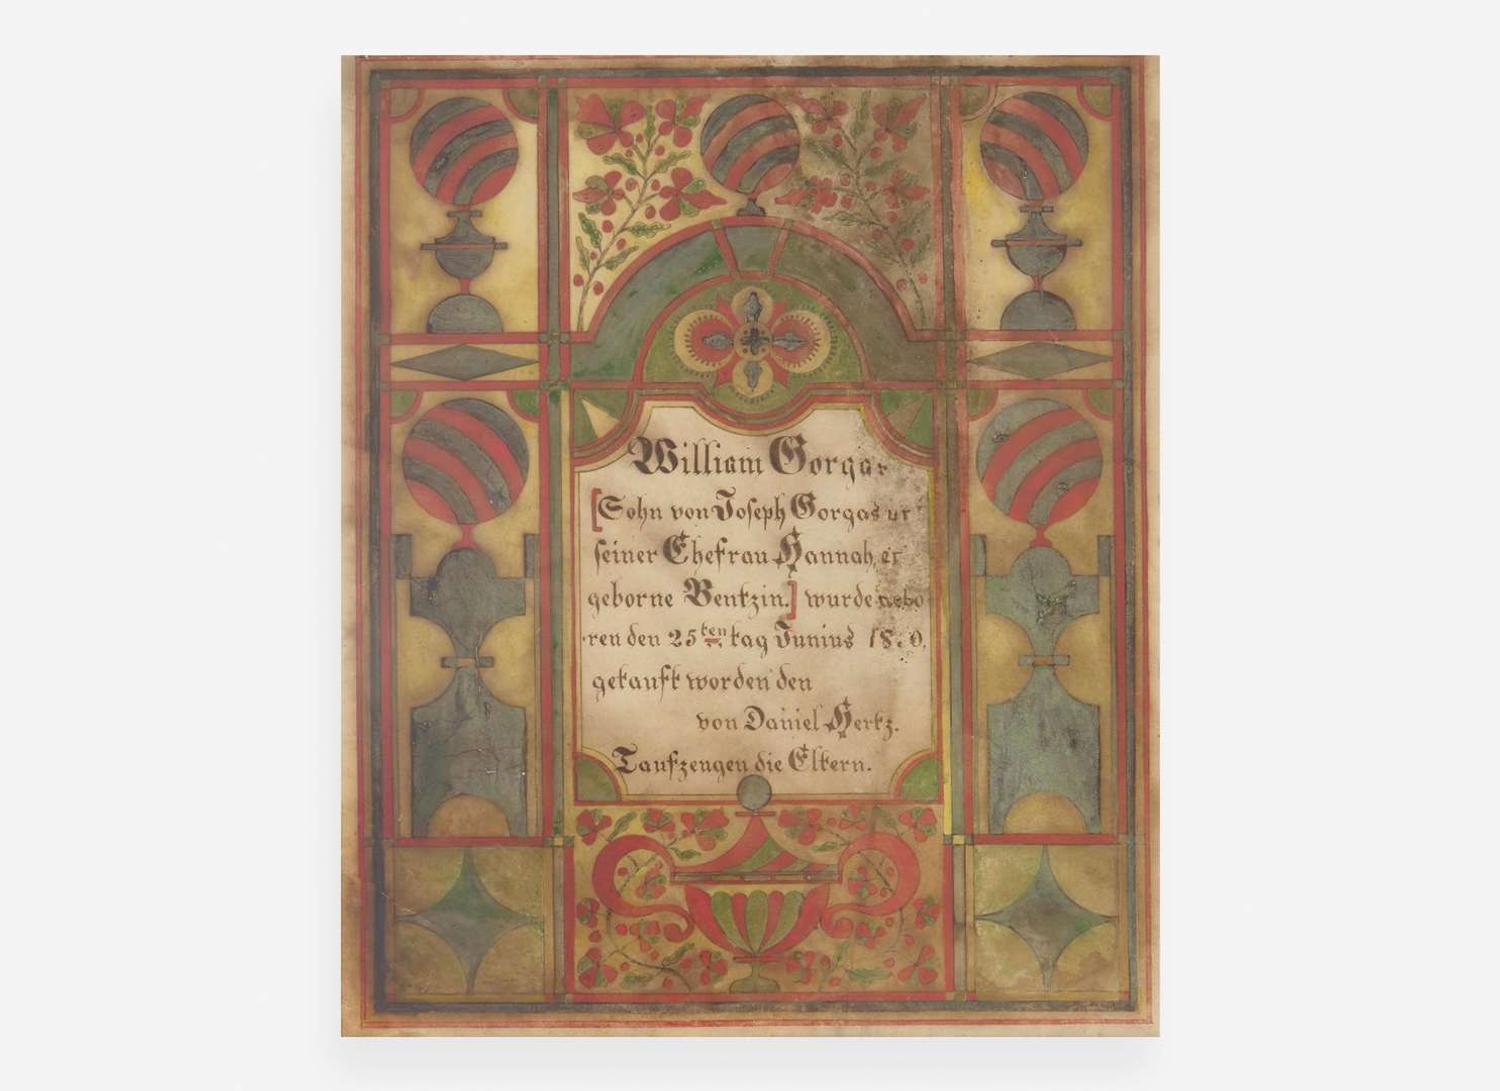 William Gorgas
[Sohn von Joseph Gorgas u
seiner Ehefrau Hannah, ei
geborne Bentzin.] wurde gebo
ren den 25ten tag Junius
getauft worden den
von Daniel Hertz.
Taufzeugen die Eltern.